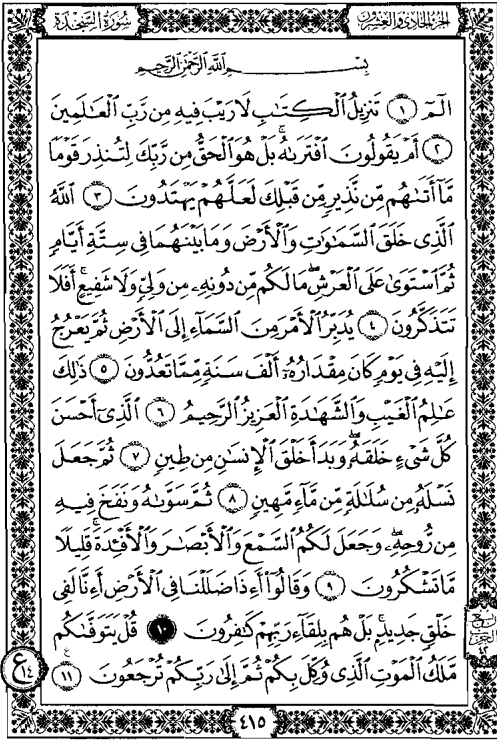 سُورَةُ السَّجْدَةِ
الجزء الحادي والعشرون
بِسْمِ اللَّهِ الرَّحْمَٰنِ الرَّحِيمِ
الٓمٓ ١ تَنزِيلُ ٱلْكِتَٰبِ لَا رَيْبَ فِيهِ مِن رَّبِّ ٱلْعَٰلَمِينَ
٢ أَمْ يَقُولُونَ ٱفْتَرَىٰهُ ۚ بَلْ هُوَ ٱلْحَقُّ مِن رَّبِّكَ لِتُنذِرَ قَوْمًا
مَّآ أَتَىٰهُم مِّن نَّذِيرٍ مِّن قَبْلِكَ لَعَلَّهُمْ يَهْتَدُونَ ٣ ٱللَّهُ
ٱلَّذِى خَلَقَ ٱلسَّمَٰوَٰتِ وَٱلْأَرْضَ وَمَا بَيْنَهُمَا فِى سِتَّةِ أَيَّامٍ
ثُمَّ ٱسْتَوَىٰ عَلَى ٱلْعَرْشِ ۖ مَا لَكُم مِّن دُونِهِۦ مِن وَلِىٍّ وَلَا شَفِيعٍ ۚ أَفَلَا
تَتَذَكَّرُونَ ٤ يُدَبِّرُ ٱلْأَمْرَ مِنَ ٱلسَّمَآءِ إِلَى ٱلْأَرْضِ ثُمَّ يَعْرُجُ
إِلَيْهِ فِى يَوْمٍ كَانَ مِقْدَارُهُۥٓ أَلْفَ سَنَةٍ مِّمَّا تَعُدُّونَ ٥ ذَٰلِكَ
عَٰلِمُ ٱلْغَيْبِ وَٱلشَّهَٰدَةِ ٱلْعَزِيزُ ٱلرَّحِيمُ ٦ ٱلَّذِىٓ أَحْسَنَ
كُلَّ شَىْءٍ خَلَقَهُۥ ۖ وَبَدَأَ خَلْقَ ٱلْإِنسَٰنِ مِن طِينٍ ٧ ثُمَّ جَعَلَ
نَسْلَهُۥ مِن سُلَٰلَةٍ مِّن مَّآءٍ مَّهِينٍ ٨ ثُمَّ سَوَّىٰهُ وَنَفَخَ فِيهِ
مِن رُّوحِهِۦ ۖ وَجَعَلَ لَكُمُ ٱلسَّمْعَ وَٱلْأَبْصَٰرَ وَٱلْأَفْـِٔدَةَ ۚ قَلِيلًا
مَّا تَشْكُرُونَ ٩ وَقَالُوٓا۟ أَءِذَا ضَلَلْنَا فِى ٱلْأَرْضِ أَءِنَّا لَفِى
خَلْقٍ جَدِيدٍۭ ۚ بَلْ هُم بِلِقَآءِ رَبِّهِمْ كَٰفِرُونَ ١٠ قُلْ يَتَوَفَّىٰكُم
مَّلَكُ ٱلْمَوْتِ ٱلَّذِى وُكِّلَ بِكُمْ ثُمَّ إِلَىٰ رَبِّكُمْ تُرْجَعُونَ ١١
٤١٥